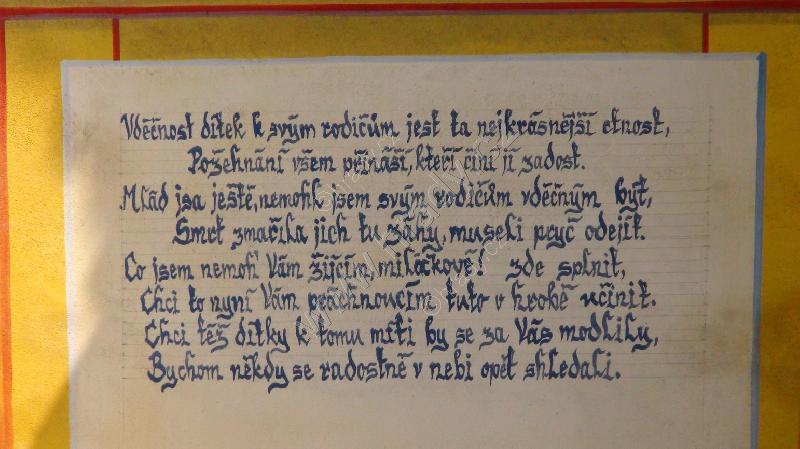 Vděčnost dítek k svým rodičům jest ta nejkrásnější ctnost,
Požehnání všem přináší, kteří činí jí zadost.
Mlád jsa ještě, nemohl jsem svým rodičům vděčným být,
Smrt zmařila jich tu záhy, museli pryč odejít.
Co jsem nemohl Vám žijícím miláčkově! zde splnit,
Chci to nyní Vám práchnoucím tuto v hrobě učinit.
Chci též dítky k tomu míti by se za Vás modlily,
Bychom někdy se radostně v nebi opět shledali.